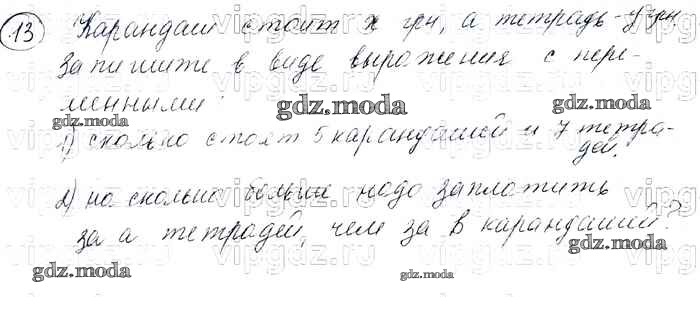 13 Карандаш стоит х грн, а тетрадь - у грн.
Запишите в виде выражения с пере-
менными:
1) сколько стоят 5 карандашей и 7 тетра-
дей.
2) на сколько больше надо заплатить
за а тетрадей, чем за в карандашей?
gdz.moda
gdz.moda
gdz.moda
gdz.moda
gdz.moda
gdz.moda
gdz.moda
gdz.moda
vipgdz